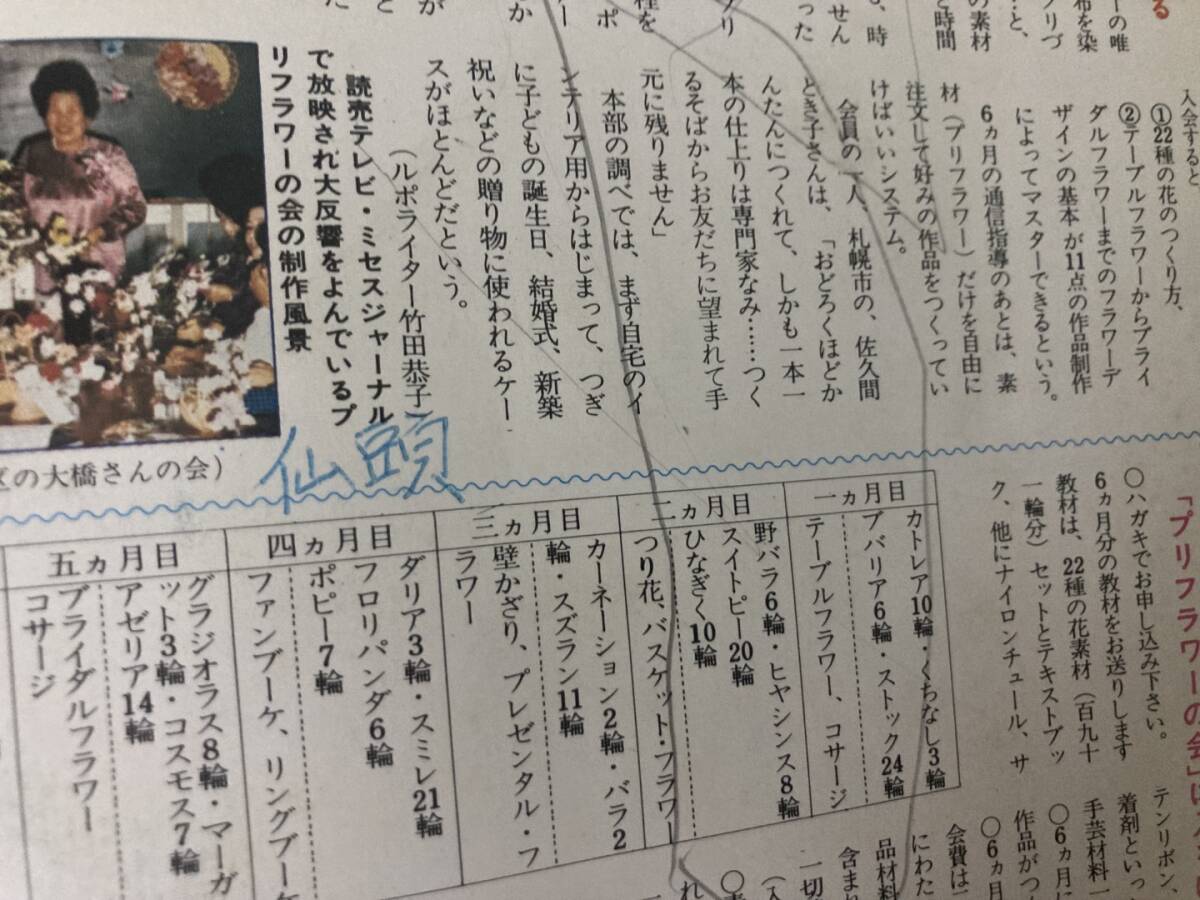 る
ーの唯
布を染
の素材
と時間
…と、
プリづ
入会すると
①22種の花のつくり方、
②テーブルフラワーからブライ
ダルフラワーまでのフラワーデ
ザインの基本が11点の作品制作
によってマスターできるという。
6ヵ月の通信指導のあとは、素
材（プリフラワー）だけを自由に
注文して好みの作品をつくってい
けばいいシステム。
会員の一人、札幌市の、佐久間
とき子さんは、「おどろくほどか
んたんにつくれて、しかも一本一
本の仕上りは専門家なみ……つく
るそばからお友だちに望まれて手
元に残りません」
本部の調べでは、まず自宅のイ
ンテリア用からはじまって、つぎ
に子どもの誕生日、結婚式、新築
祝いなどの贈り物に使われるケー
スがほとんどだという。
（ルポライター竹田恭子）
読売テレビ・ミセスジャーナル
で放映され大反響をよんでいるプ
リフラワーの会の制作風景
区の大橋さんの会）
仙頭
「プリフラワーの会」は
○ハガキでお申し込み下さい。
6ヵ月分の教材をお送りします
教材は、22種の花素材（百九十
一輪分）セットとテキストブッ
ク、他にナイロンチュール、サ
テンリボン、
着剤といっ
手芸材料一
○6ヵ月に
作品がつ
○6ヵ月
会費は二
にわた
品材料
含まり
一切
一ヵ月目
カトレア10輪・くちなし3輪
ブバリア6輪・ストック24輪
テーブルフラワー、コサージ
二ヵ月目
野バラ6輪・ヒヤシンス8輪
スイトピー20輪
ひなぎく10輪
つり花、バスケット・フラワー
三ヵ月目
カーネーション2輪・バラ2
輪・スズラン11輪
壁かざり、プレゼンタル・フ
ラワー
四ヵ月目
ダリア3輪・スミレ21輪
フロリバンダ6輪
ポピー7輪
ファンブーケ、リングブーケ
五ヵ月目
グラジオラス8輪・マーガ
ット3輪・コスモス7輪
アゼリア14輪
ブライダルフラワー
コサージ